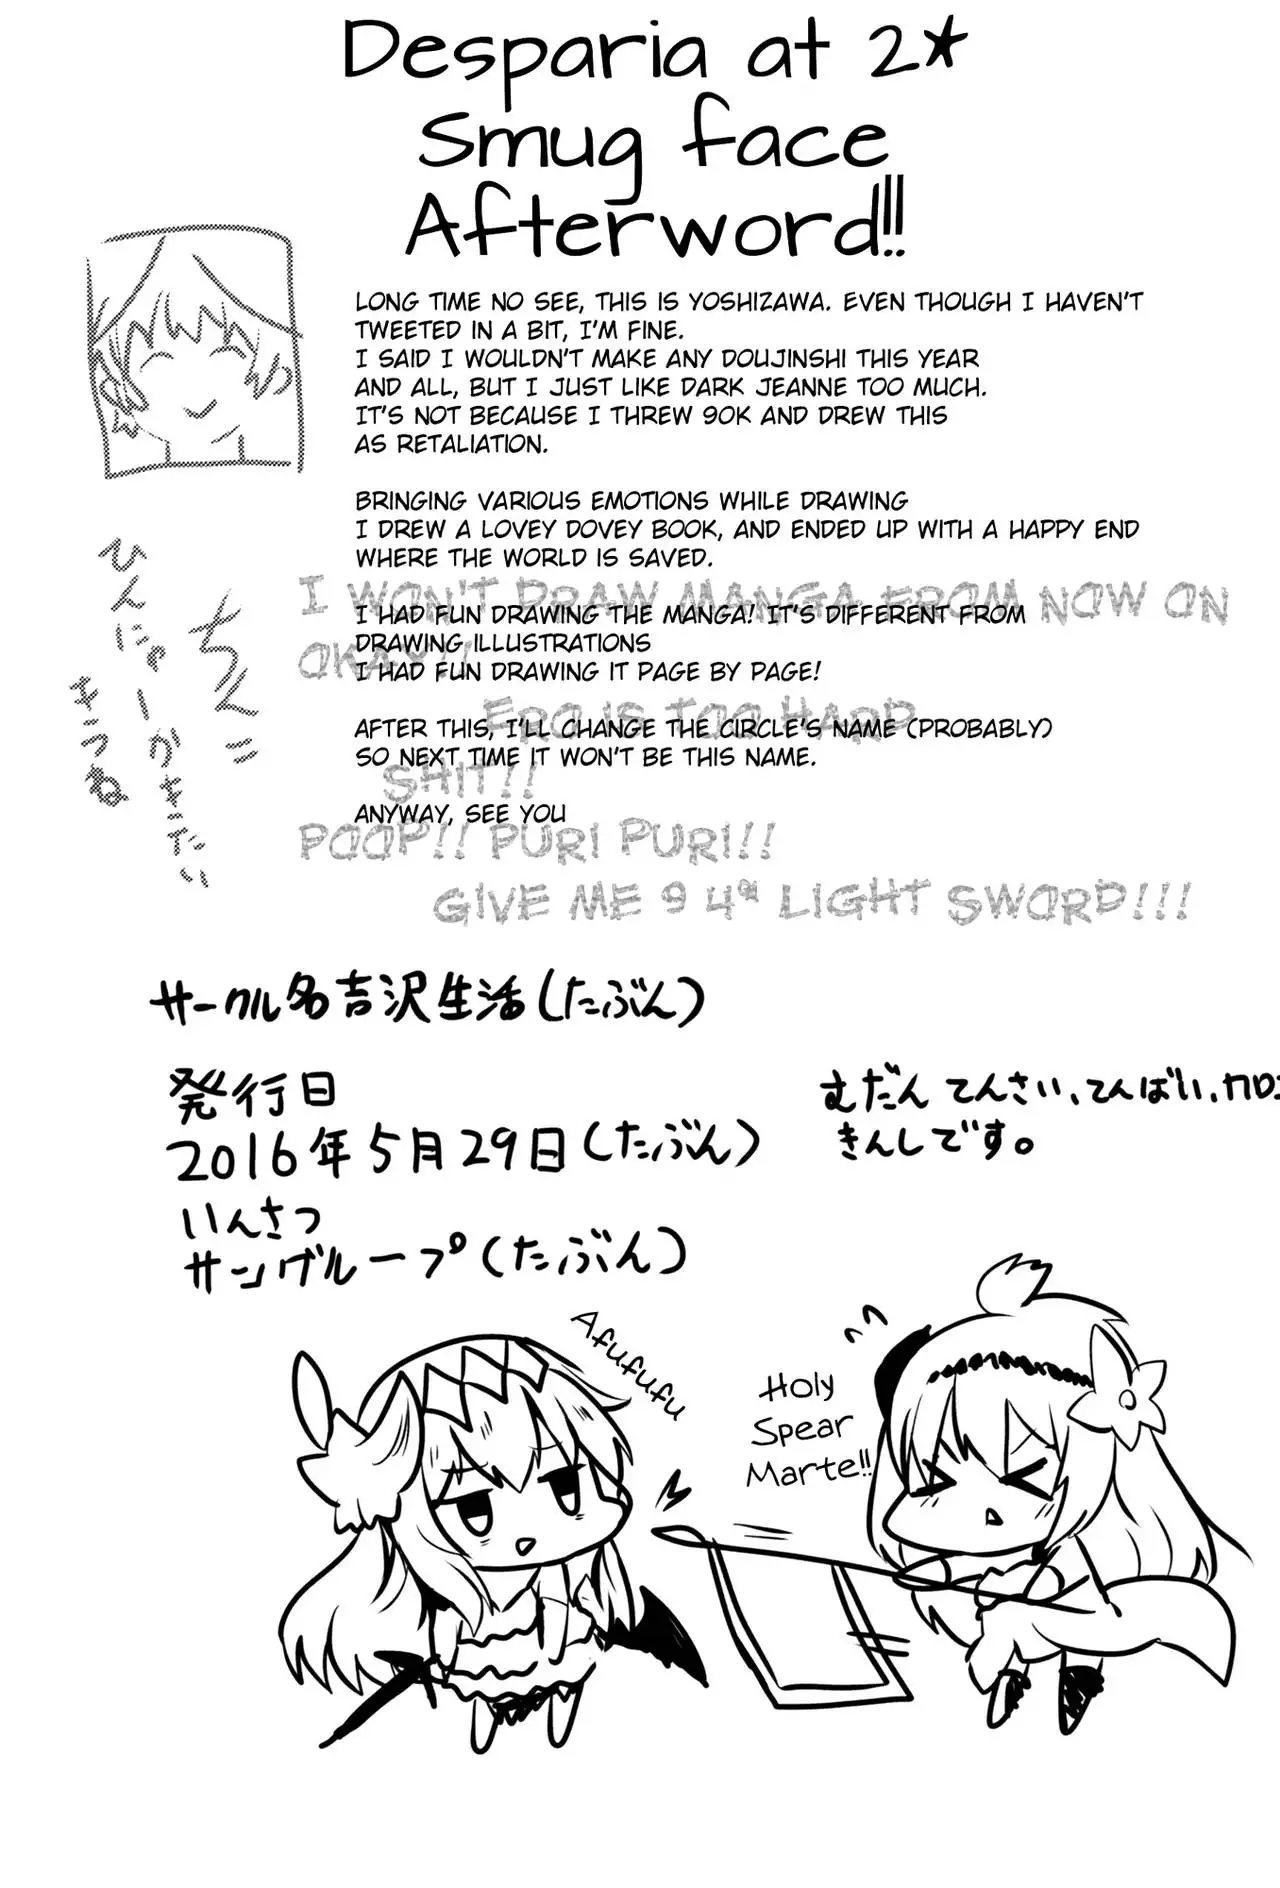 Desparia at 2★
Smug face
Afterword!!
LONG TIME NO SEE, THIS IS YOSHIZAWA. EVEN THOUGH I HAVEN'T
TWEETED IN A BIT, I'M FINE.
I SAID I WOULDN'T MAKE ANY DOUJINSHI THIS YEAR
AND ALL, BUT I JUST LIKE DARK JEANNE TOO MUCH.
IT'S NOT BECAUSE I THREW 90K AND DREW THIS
AS RETALIATION.
BRINGING VARIOUS EMOTIONS WHILE DRAWING
I DREW A LOVEY DOVEY BOOK, AND ENDED UP WITH A HAPPY END
WHERE THE WORLD IS SAVED.
I WON'T DRAW MANGA FROM NOW ON
I HAD FUN DRAWING THE MANGA! IT'S DIFFERENT FROM
DRAWING ILLUSTRATIONS
OKAY!!
I HAD FUN DRAWING IT PAGE BY PAGE!
ERO IS TOO HARD
AFTER THIS, I'LL CHANGE THE CIRCLE'S NAME (PROBABLY)
SO NEXT TIME IT WON'T BE THIS NAME.
SHIT!!
ANYWAY, SEE YOU
POOP!! PURI PURI!!
GIVE ME 9 4* LIGHT SWORD!!!
ちんこ
ひんにゅーがきたい
きつね
サークル名吉沢生活(たぶん)
発行日
2016年5月29日(たぶん)
いんさつ
サングループ(たぶん)
むだん てんさい、てんばい、
きんしです。
Afufufufu
Holy
Spear
Marte!!